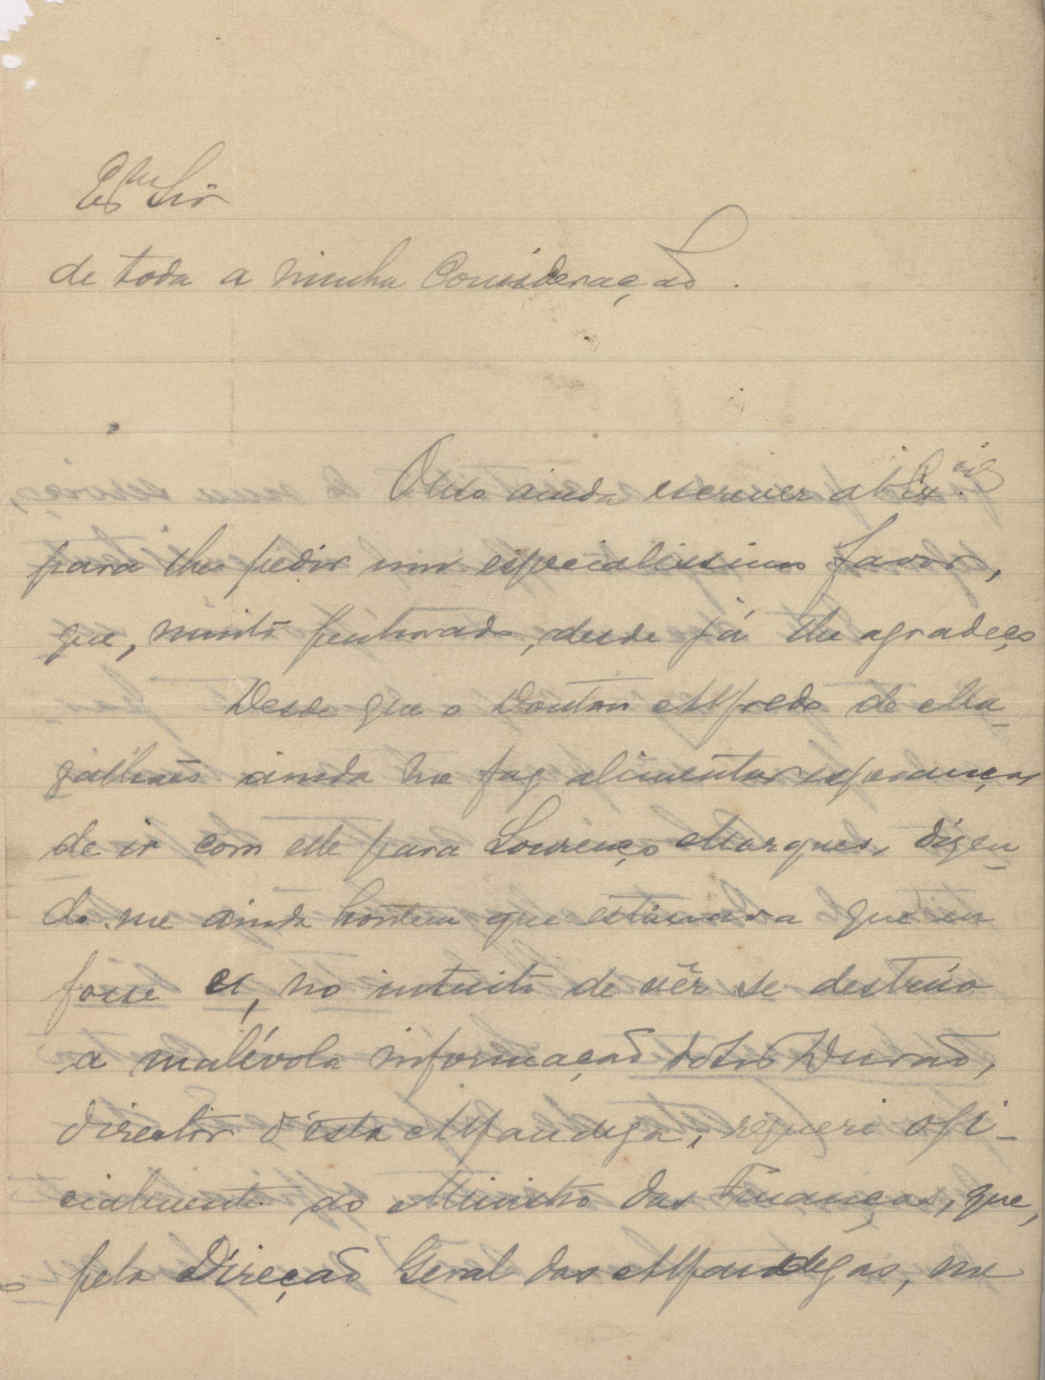 Ex.mo Snr
de toda a minha Consideração.
Ouso ainda escrever a V. Ex.cia
para lhe pedir um especialissimo favor,
que, muito penhorado, desde já lhe agradeço
Desde que o Doutor Alfredo de Ma-
galhães ainda me faz alimentar esperanças
de ir com elle para Lourenço Marques, dizen-
do-me ainda hontem que estimava que eu
fosse, no intuito de vêr se destrúo
a malévola informação do Snr Durão,
director d'esta Alfandega, requeri ofi-
cialmente ao Ministro das Finanças, que,
pela Direção Geral das Alfandegas, me